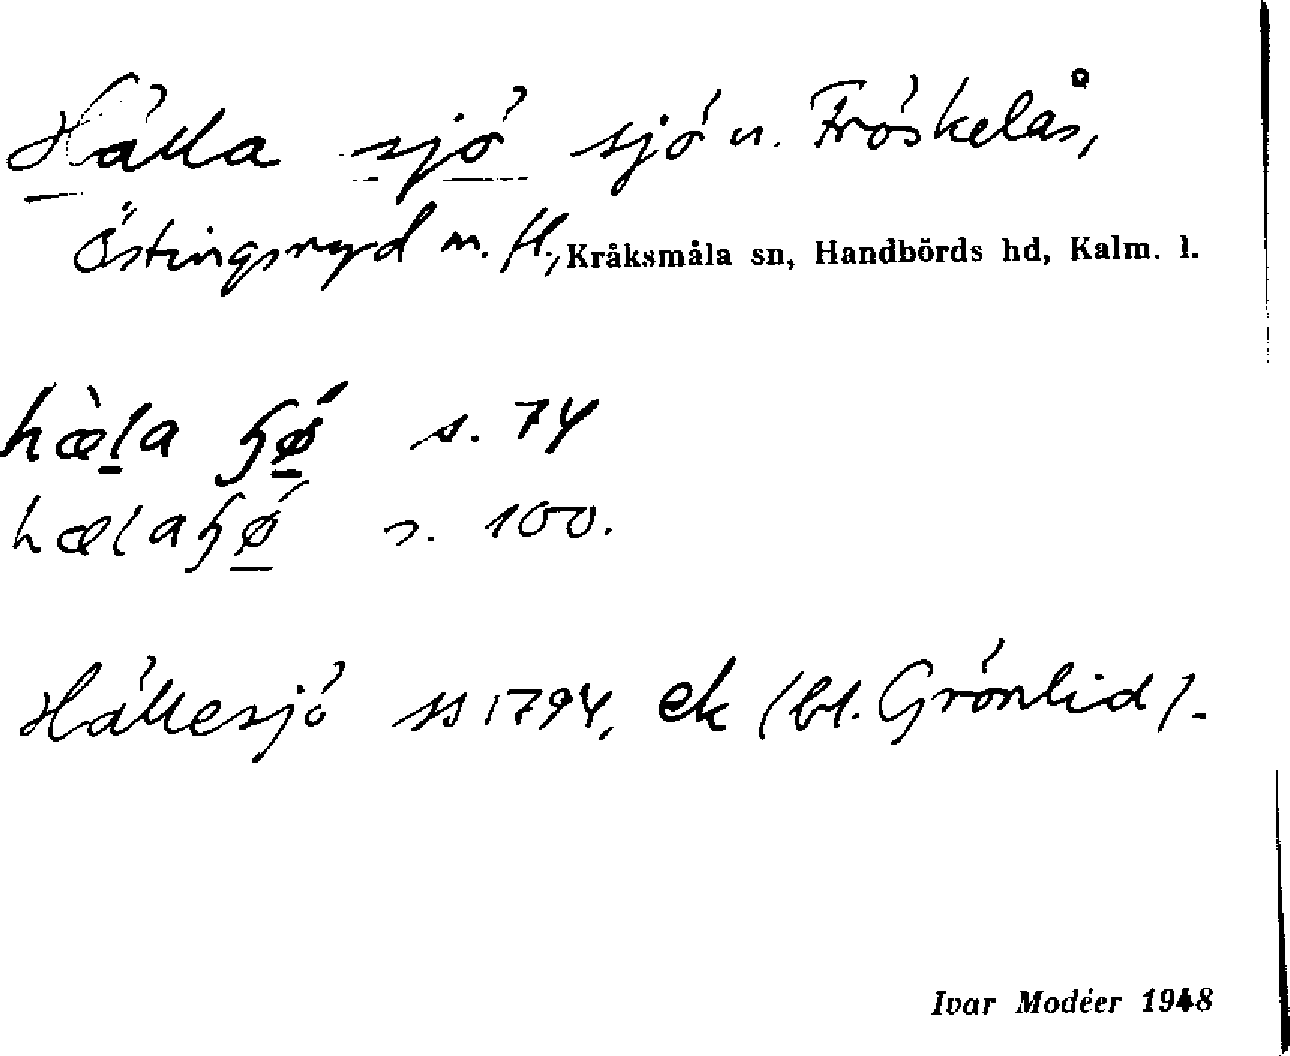 Hälla sjö sjö u. Fröskelås,
Östingsryd m. fl., Kråksmåla sn, Handbörds hd, Kalm. l.
hæ̀la ɧǿ s. 74
hælaɧǿ s. 100.
Hällesjö ss 1794, ek (bl. Grönlid).
Ivar Modéer 1948